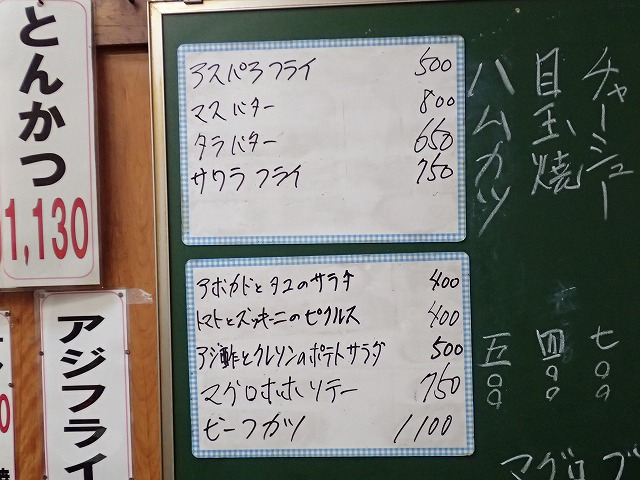 とんかつ
1,130
アジフライ
アスパラフライ 500
マスバター 800
タラバター 650
サワラフライ 750
アボカドとタコのサラダ 400
トマトとズッキーニのピクルス 400
アジ酢とクレソンのポテトサラダ 500
マグロホホソテー 750
ビーフカツ 1100
チャーシュー 七〇〇
目玉焼 四〇〇
ハムカツ 五〇〇
マグロブ